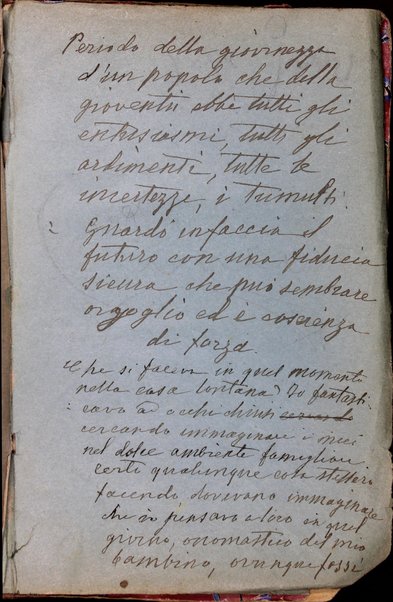 Periodo della giovinezza
d'un popolo che della
gioventù ebbe tutti gli
entusiasmi, tutti gli
ardimenti, tutte le
incertezze, i tumulti.
Guardò in faccia il
futuro con una fiducia
sicura che può sembrare
orgoglio ed è coscienza
di forza.
Che si faceva in quel momento
nella casa lontana? Io fantasti-
cavo ad occhi chiusi
cercando immaginare i miei
nel dolce ambiente famigliare
certo qualunque cosa stessero
facendo dovevano immaginare
che io pensavo a loro in quel
giorno, onomastico del mio
bambino, ovunque fossi